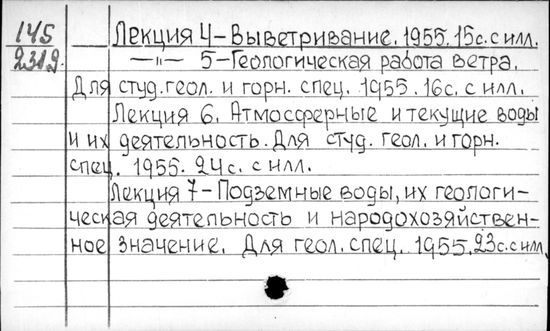 145
2312.
Лекция 4-Выветривание. 1955. 15с. с илл.
—"— 5-Геологическая работа ветра.
Для студ. геол. и горн. спец. 1955. 16с. с илл.
Лекция 6. Атмосферные и текущие воды
и их деятельность. Для студ. геол. и горн.
спец. 1955. 24с. с илл.
Лекция 7-Подземные воды, их геологи-
ческая деятельность и народохозяйствен-
ное значение. Для геол. спец. 1955. 23с. с илл.